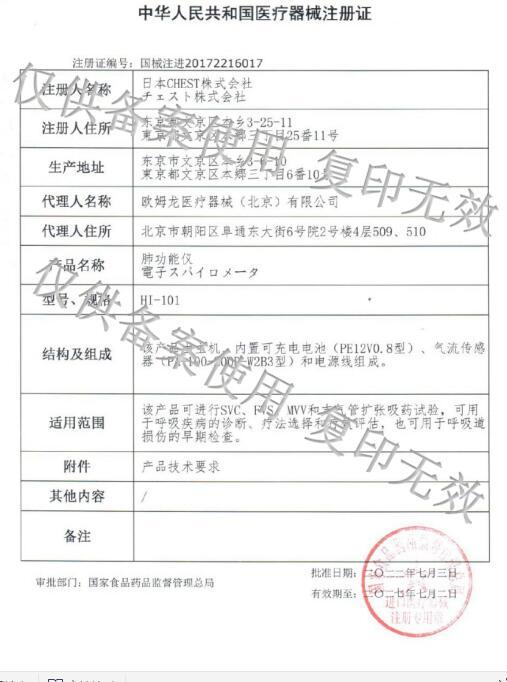 中华人民共和国医疗器械注册证
注册证编号：国械注进20172216017
注册人名称
日本CHEST株式会社
チェスト株式会社
注册人住所
东京都文京区本乡3-25-11
東京都文京区本郷三丁目25番11号
生产地址
东京市文京区本乡3-6-10
東京都文京区本郷三丁目6番10号
代理人名称
欧姆龙医疗器械（北京）有限公司
代理人住所
北京市朝阳区阜通东大街6号院2号楼4层509、510
产品名称
肺功能仪
電子スパイロメータ
型号、规格
HI-101
结构及组成
该产品由主机、内置可充电电池（PE12V0.8型）、气流传感
器（ W2B3型）和电源线组成。
适用范围
该产品可进行SVC、 MVV和支气管扩张吸药试验，可用
于呼吸疾病的诊断、疗法选择和疗效评估，也可用于呼吸道
损伤的早期检查。
附件
产品技术要求
其他内容
/
备注
审批部门：国家食品药品监督管理总局
批准日期：二〇二二年七月三日
有效期至：二〇二七年七月二日
进口医疗器械
注册专用章
仅供备案使用 复印无效
仅供备案使用 复印无效